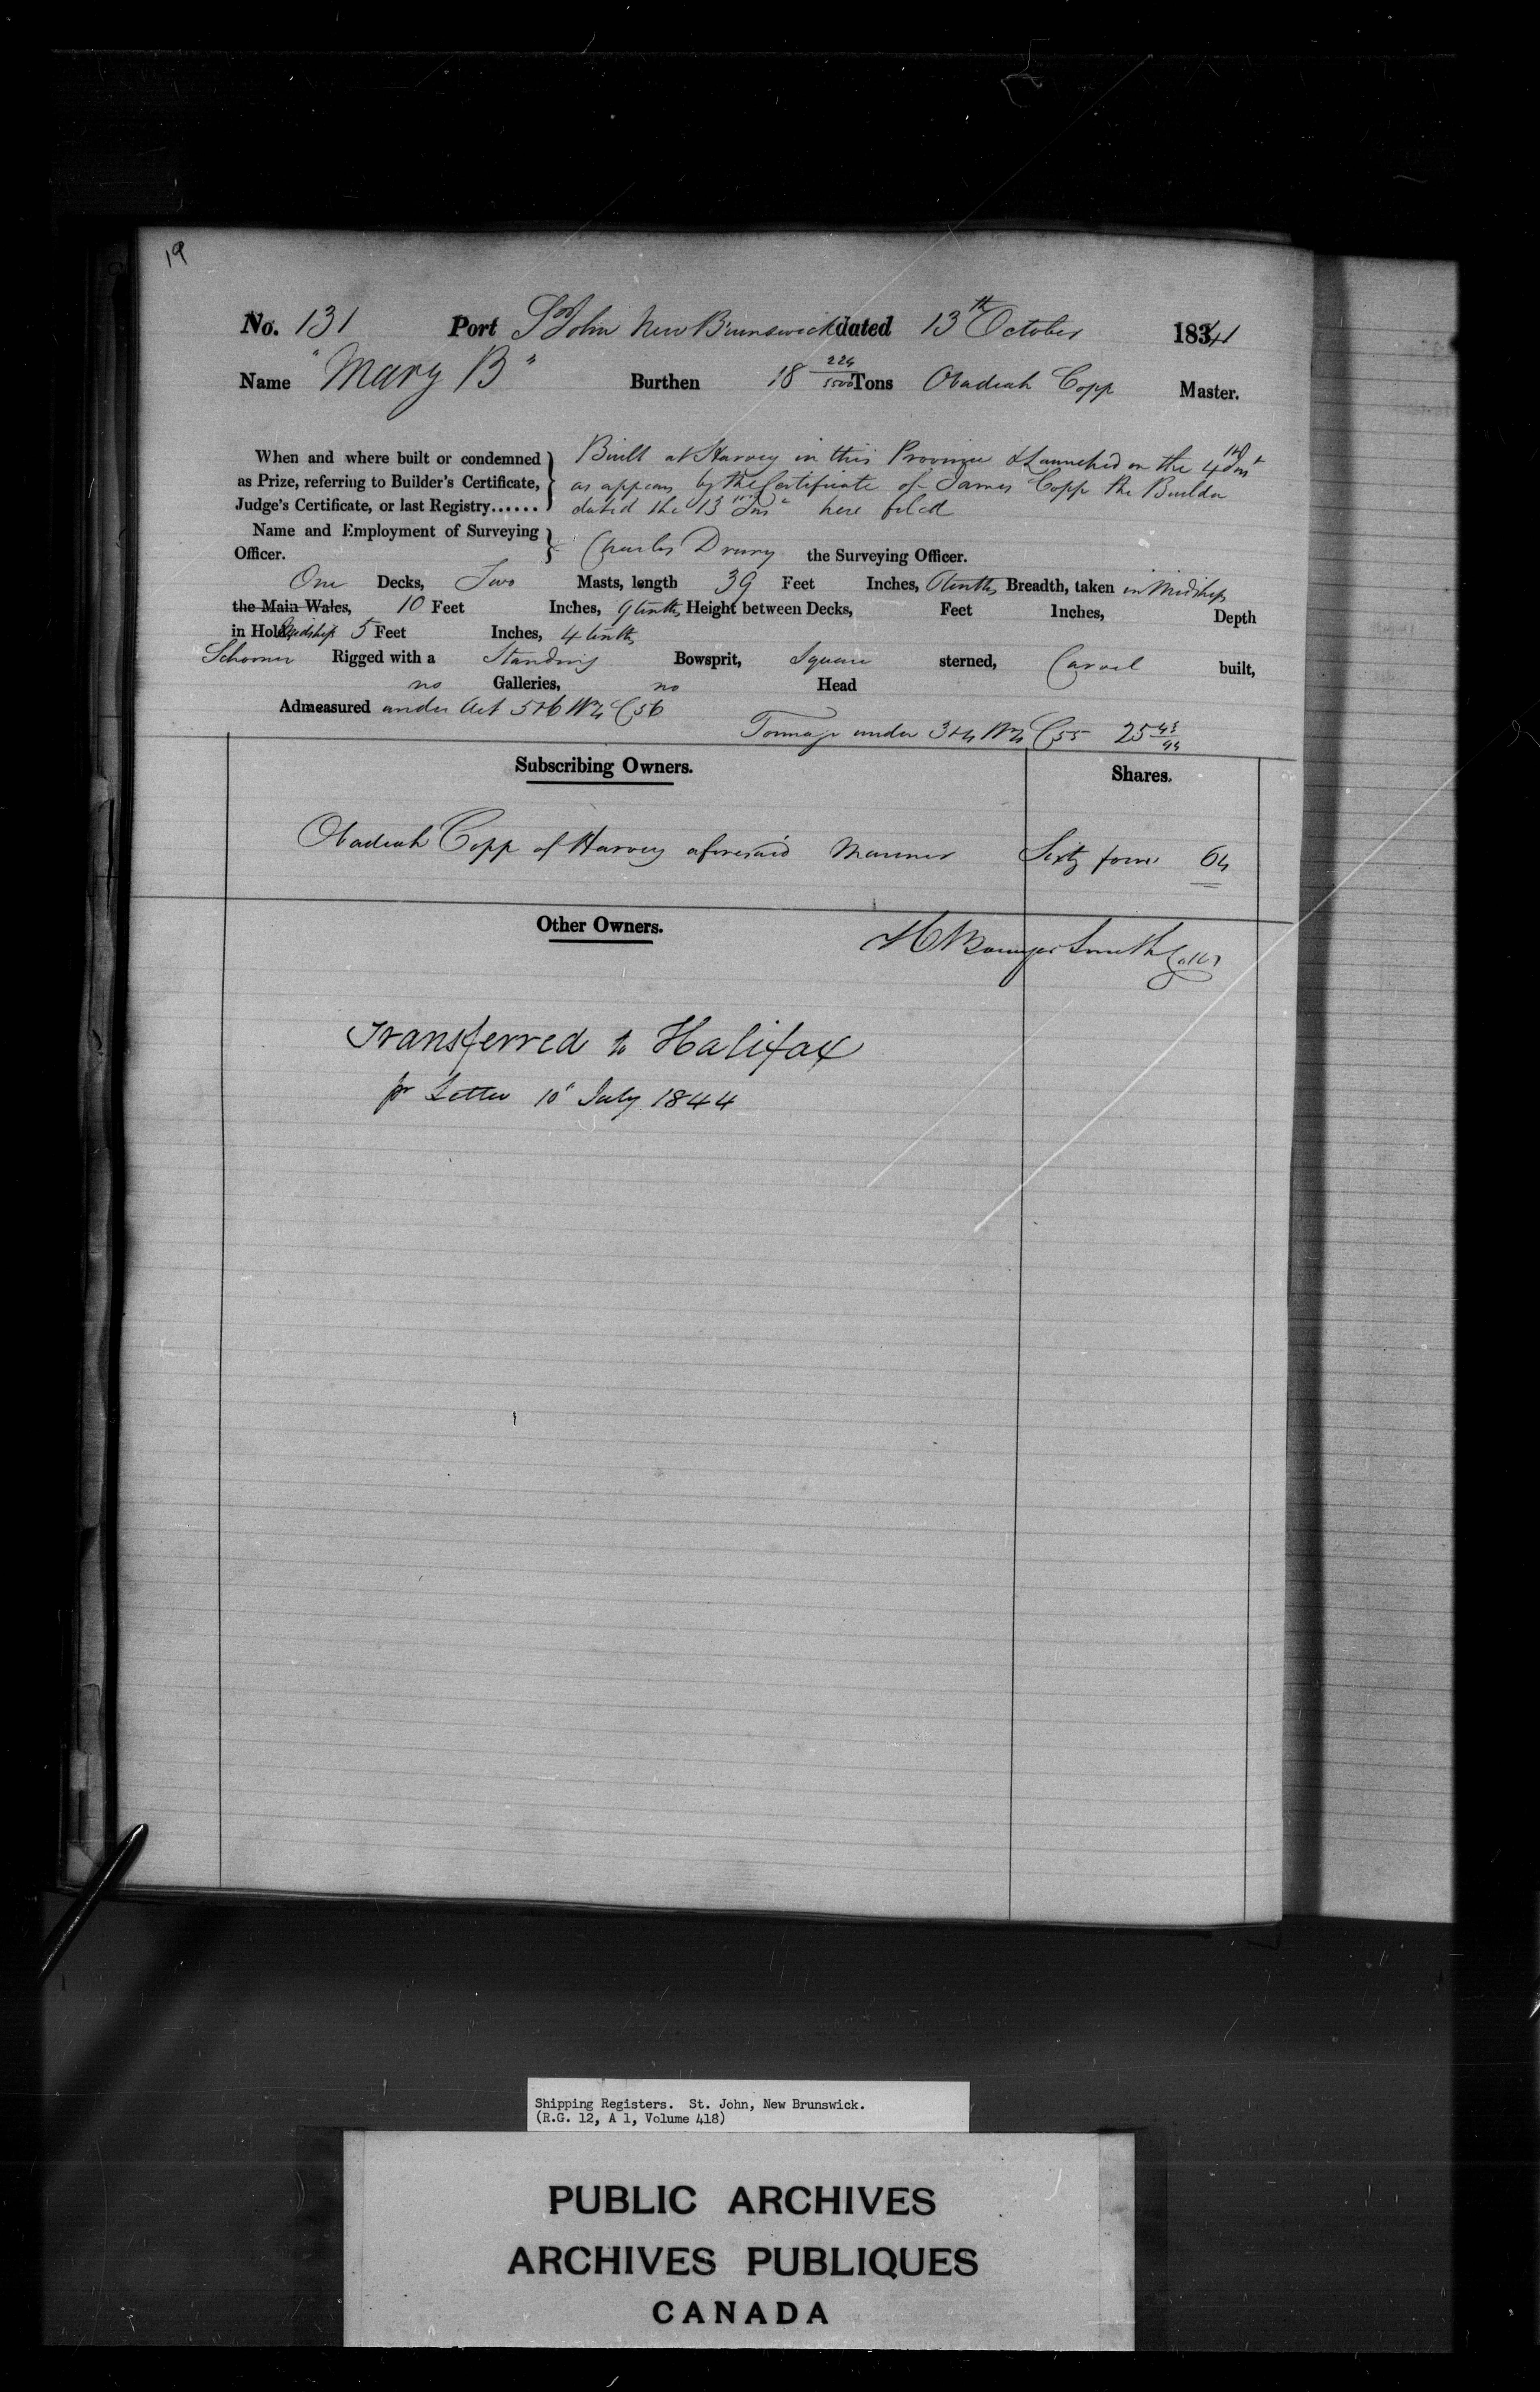 19
No. 131 Port St John New Brunswick dated 13th October 1841
Name "Mary B" Burthen 18 224/3500 Tons Obadiah Copp Master.
When and where built or condemned as Prize, referring to Builder's Certificate, Judge's Certificate, or last Registry......
Built at Harvey in this Province & Launched on the 4 Inst
as appears by the Certificate of James Copp the Builder
dated the 13 Inst here filed
Name and Employment of Surveying Officer. Charles Drury the Surveying Officer.
One Decks, Two Masts, length 39 Feet Inches, 6 tenths, Breadth, taken in Midships
the Main Wales, 10 Feet Inches, 9 tenths, Height between Decks, Feet Inches, Depth
in Hold Midships 5 Feet Inches, 4 tenths
Schooner Rigged with a Standing Bowsprit, Square sterned, Carvel built,
no Galleries, no Head
Admeasured under Act 5+6 Wm 4 C 56
Tonnage under 3+4 Wm 4 C 55 25 43/94
Subscribing Owners. Shares.
Obadiah Copp of Harvey aforesaid Mariner Sixty four 64
Other Owners.
H Bowyer Smith Collr
Transferred to Halifax
pr Letter 10 July 1844
Shipping Registers. St. John, New Brunswick.
(R.G. 12, A 1, Volume 418)
PUBLIC ARCHIVES
ARCHIVES PUBLIQUES
CANADA